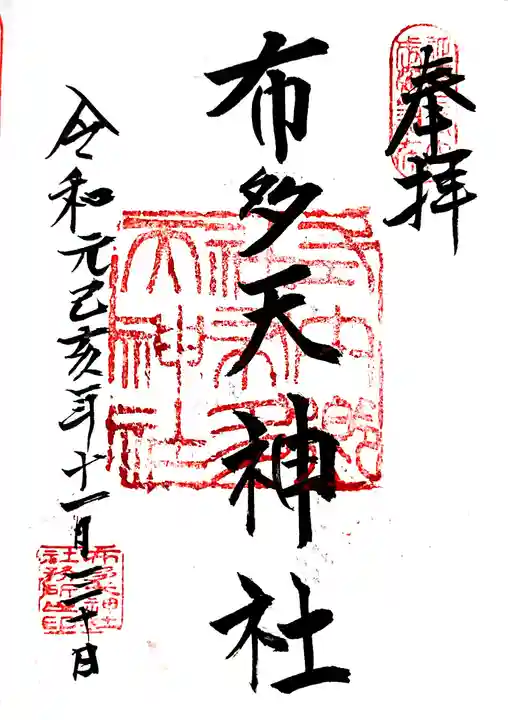 奉拝
布多天神社
令和元己亥年十一月三十日
布多天神社
社務所之印